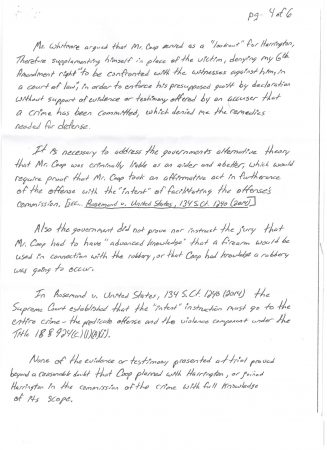 pg- 4 of 6
Mr. Whitmore argued that Mr. Coop served as a "lookout" for Harrington,
Therefore supplementing himself in place of the victim, denying my 6th
Amendment right" to be confronted with the witnesses against him, in
a court of law", in order to enforce his presupposed guilt by declaration
without support of evidence or testimony offered by an accuser that
a crime has been committed, which denied me the remedies
needed for defense.
It is necessary to address the governments alternative theory
that Mr. Coop was criminally liable as an aider and abetter, which would
require proof that Mr. Coop took an affirmative act in furtherance
of the offense with the "intent" of facilitating the offense's
commission. Rosemond v. United States, 134 S.Ct. 1240 (2014)]
Also the government did not prove nor instruct the jury that
Mr. Coop had to have "advanced knowledge" that a firearm would be
used in connection with the robbery, or that Coop had knowledge a robbery
was going to occur.
In Rosemond v. United States, 134 S.Ct. 1240 (2014) the
Supreme Court established that the "intent" instruction must go to the
entire crime - the predicate offense and the violence component under the
Title 18 § 924(c)(1)(A)(i).
None of the evidence or testimony presented at trial proved
beyond a reasonable doubt that Coop planned with Harrington, or joined
Harrington in the commission of the crime with full knowledge
of its scope.